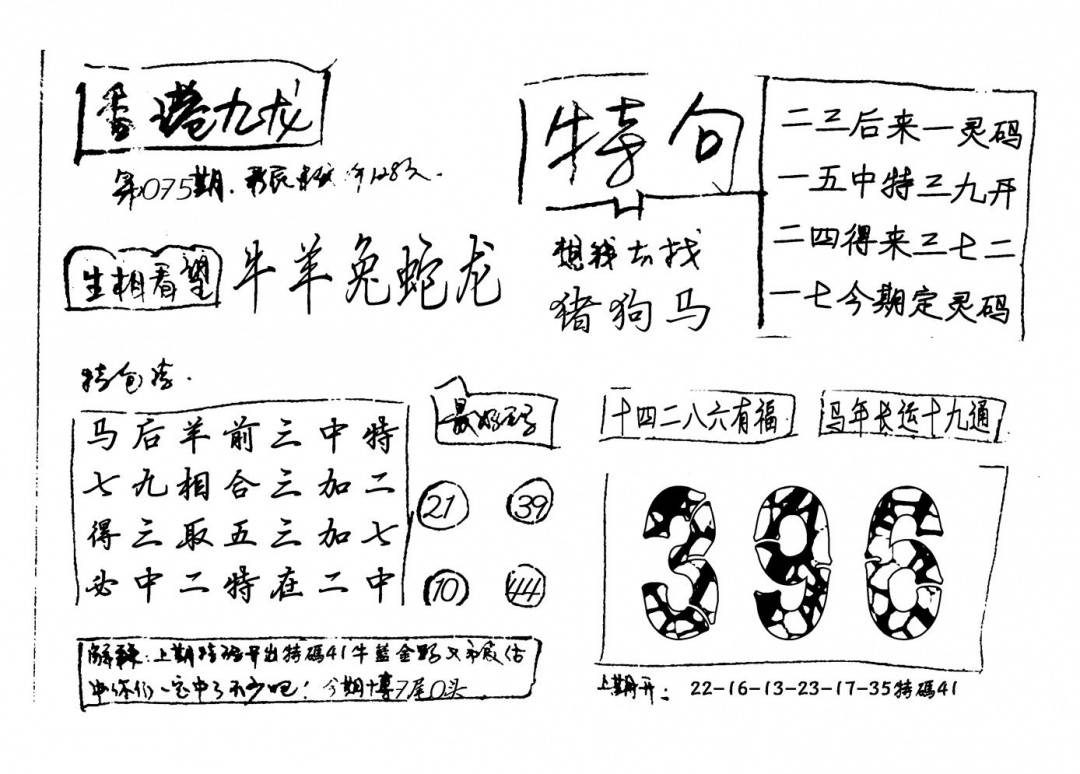 香港九龙
第075期.
生相看望
牛羊兔蛇龙
特句
想我去找
猪狗马
二三后来一灵码
一五中特三九开
二四得来三七二
一七今期定灵码
特包
马后羊前三中特
七九相合三加二
得三取五三加七
必中二特在二中
最好
21 39
10 44
十四二八六有福
马年长运十九通
396
解释:上期特码开出特碼41牛蓝金野又
中你们一定中了不少吧! 今期博7尾0头
上期开: 22-16-13-23-17-35特碼41